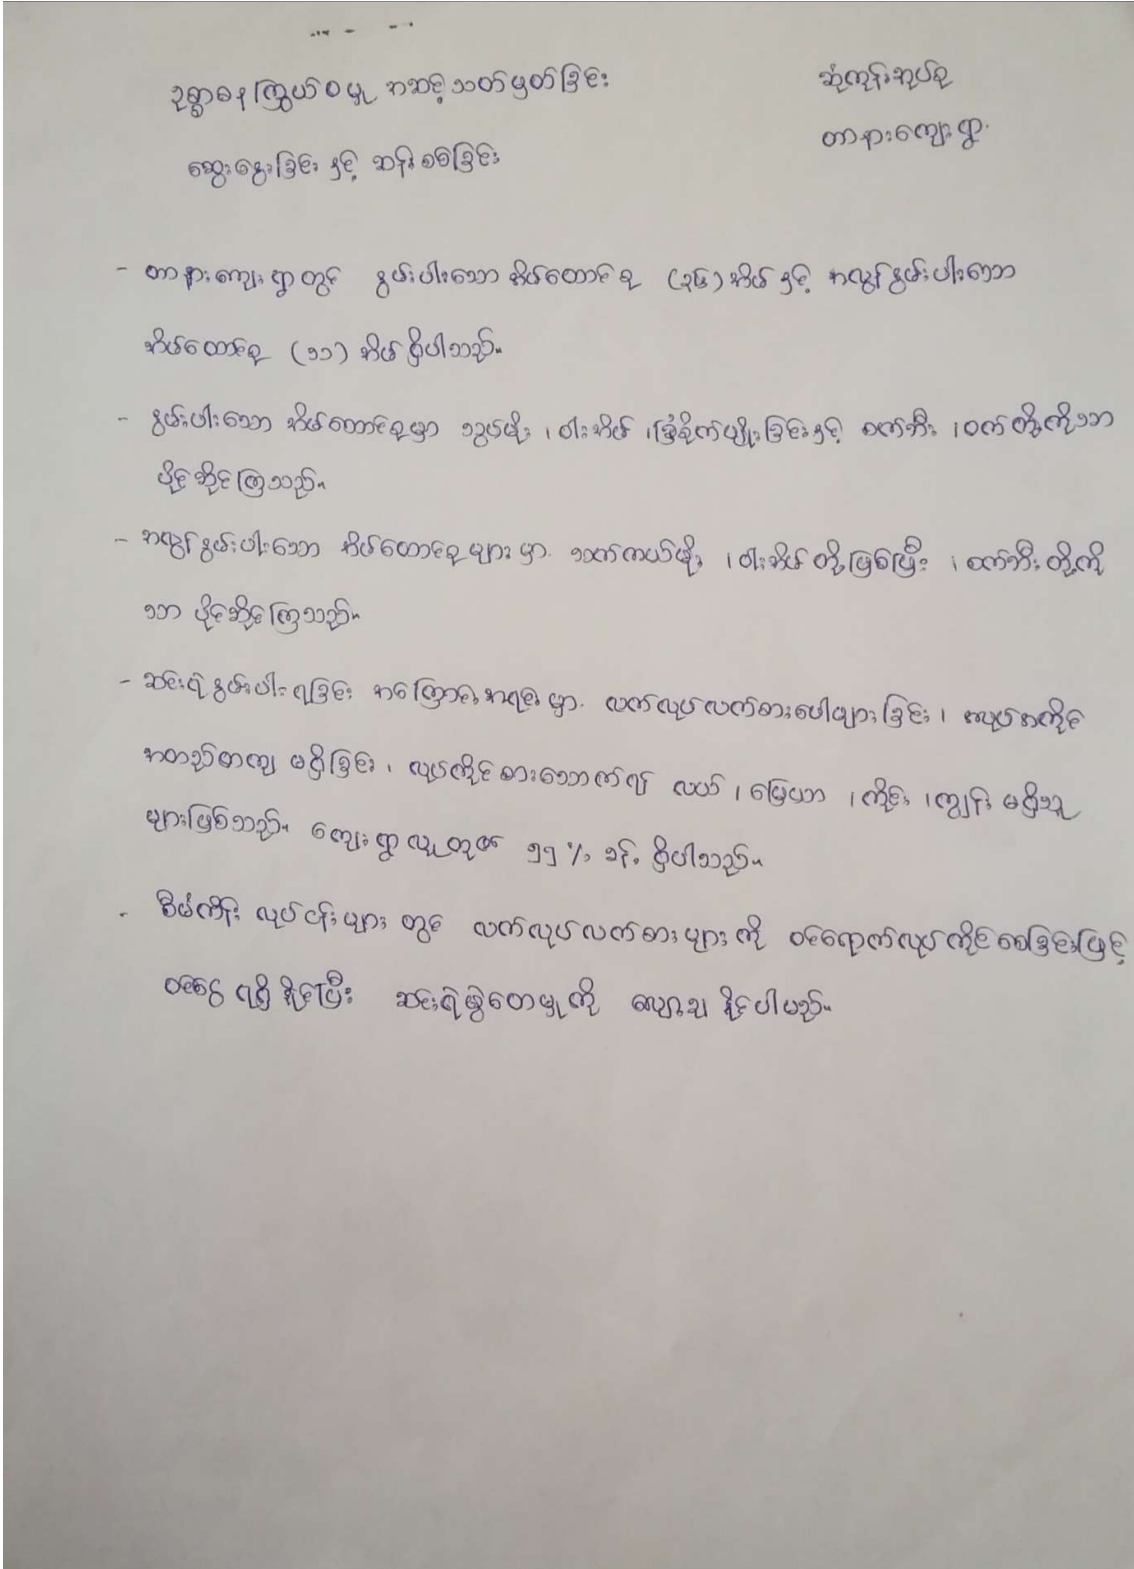 ဥစ္စာဓနကြွယ်ဝမှု အဆင့်သတ်မှတ်ခြင်း
ဆုံကုန်းအုပ်စု
ဆွေးနွေးခြင်း နှင့် ဆန်းစစ်ခြင်း
တာနားကျေးရွာ
- တာနားကျေးရွာတွင် နွမ်းပါးသော အိမ်ထောင်စု (၃၆) အိမ် နှင့် အလွန်နွမ်းပါးသော
အိမ်ထောင်စု (၁၁) အိမ် ရှိပါသည်။
- နွမ်းပါးသော အိမ်ထောင်စုမှာ သွပ်မိုး ၊ ဝါးအိမ် ၊ ခြံစိုက်ပျိုးခြင်းနှင့် စက်ဘီး ၊ ဝက်တို့ကိုသာ
ပိုင်ဆိုင်ကြသည်။
- အလွန်နွမ်းပါးသော အိမ်ထောင်စုများမှာ သက်ကယ်မိုး ၊ ဝါးအိမ်တို့ဖြစ်ပြီး ၊ စက်ဘီးတို့ကို
သာ ပိုင်ဆိုင်ကြသည်။
- ဆင်းရဲနွမ်းပါးရခြင်း အကြောင်းအရင်းမှာ လက်လုပ်လက်စားပေါများခြင်း ၊ အလုပ်အကိုင်
အတည်တကျ မရှိခြင်း ၊ လုပ်ကိုင်စားသောက်ရန် လယ် ၊ မြေယာ ၊ ကိုင်း ၊ ကျွန်း မရှိသူ
များဖြစ်သည်။ ကျေးရွာလူထု၏ ၅၅ % ခန့် ရှိပါသည်။
- စီမံကိန်း လုပ်ငန်းများ တွင် လက်လုပ်လက်စားများကို ဝင်ရောက်လုပ်ကိုင်စေခြင်းဖြင့်
ဝင်ငွေ ရရှိနိုင်ပြီး ဆင်းရဲမွဲတေမှုကို လျှော့ချ နိုင်ပါမည်။